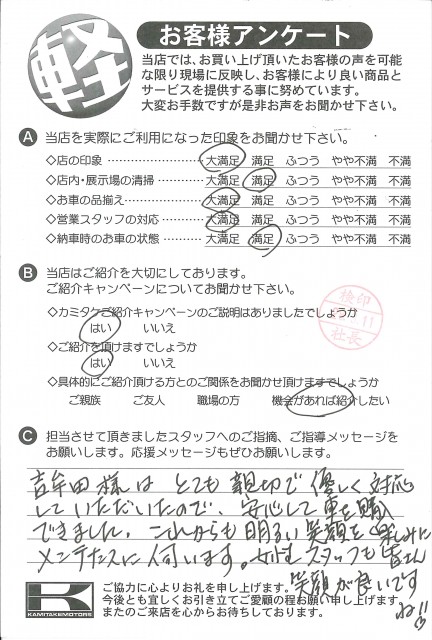 軽
お客様アンケート
当店では、お買い上げ頂いたお客様の声を可能
な限り現場に反映し、お客様により良い商品と
サービスを提供する事に努めています。
大変お手数ですが是非お声をお聞かせ下さい。
A 当店を実際にご利用になった印象をお聞かせ下さい。
◇店の印象 大満足 満足 ふつう やや不満 不満
◇店内・展示場の清掃 大満足 満足 ふつう やや不満 不満
◇お車の品揃え 大満足 満足 ふつう やや不満 不満
◇営業スタッフの対応 大満足 満足 ふつう やや不満 不満
◇納車時のお車の状態 大満足 満足 ふつう やや不満 不満
B 当店はご紹介を大切にしております。
ご紹介キャンペーンについてお聞かせ下さい。
◇カミタケご紹介キャンペーンのご説明はありましたでしょうか
はい いいえ
◇ご紹介を頂けますでしょうか
はい いいえ
◇具体的にご紹介頂ける方とのご関係をお聞かせ頂けますでしょうか
ご親族 ご友人 職場の方 機会があれば紹介したい
検印
社長
C 担当させて頂きましたスタッフへのご指摘、ご指導メッセージを
お願いします。応援メッセージもぜひお願いします。
吉牟田様は とても 親切で 優しく 対応
していただいたので、安心して 車を購入
できました。これからも 明るい 笑顔を 楽しみに
メンテナスに 伺います。女性 スタッフも 皆さん
笑顔が良いです
ね!!
K
KAMITAKEMOTORS
ご協力に心よりお礼を申し上げます。
今後とも宜しくお引き立てご愛顧の程お願い申し上げます。
またのご来店を心からお待ちしております。